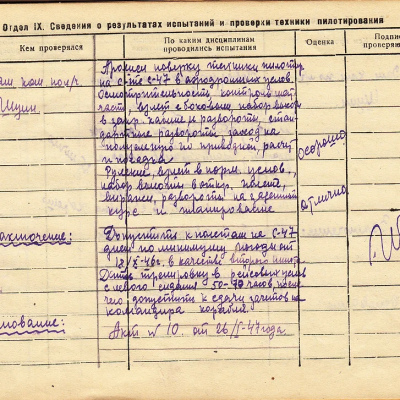 Отдел IX. Сведения о результатах испытаний и проверки техники пилотирования
Кем проверялся
По каким дисциплинам проводились испытания
Оценка
Подпи
проверяю
ком
Произвел поверку техники пилотир
на с-те С-47 в аэродромных услов.
Осмотрительность, контроль мат
часть, взлет с боковым, набор высот
в закр. кабине и развороты, стан
дартные развороты, заход на
посадку по приводной, расчет
и посадка
хорошо
Руление, взлет в норм. услов.,
набор высоты в откр. полете,
виражи, развороты на заданный
курс и планирование
отлично
аключение:
Допустить к полетам на С-47
днем по минимуму погоды от
18/X-46г. в качестве второго пилота
Дать тренировку в рейсовых услов
с левого сидания 50-70 часов, после
чего допустить к сдачи зачетов на
командира корабля.
нование:
Акт № 10. от 26/I-47 года